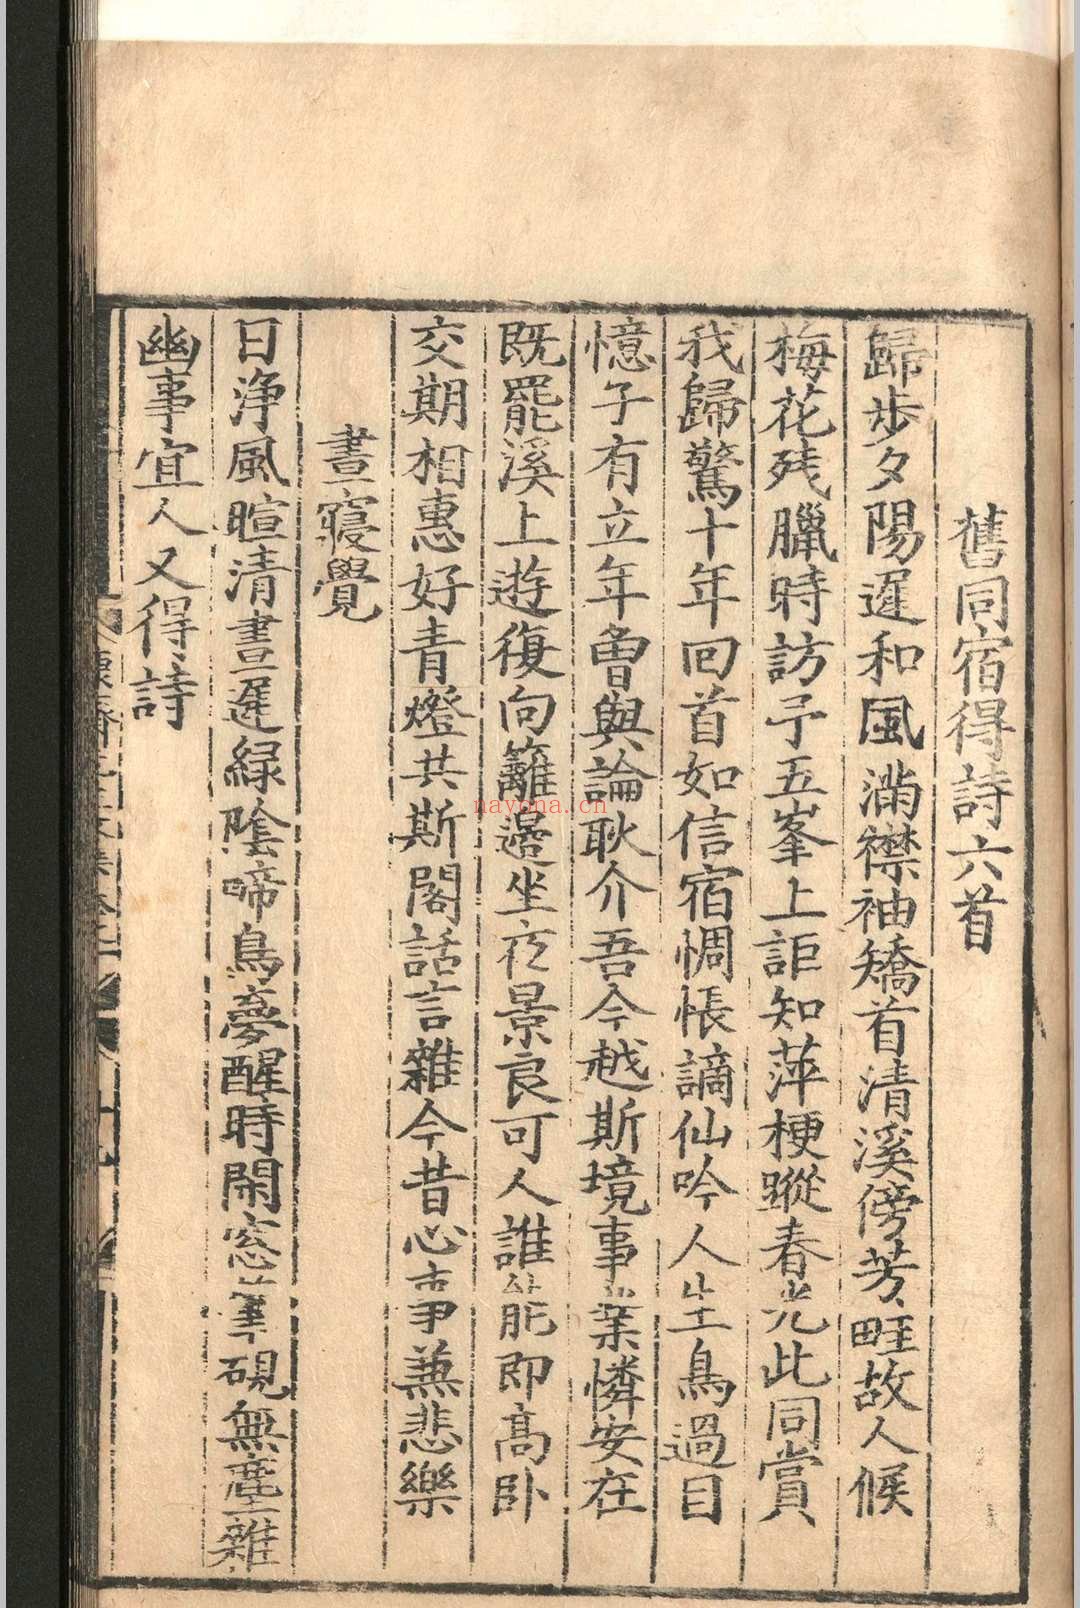 舊同宿得詩六首
歸步夕陽遲和風滿襟袖矯首清溪傍芳畦故人候
梅花残臘時訪予五峯上詎知萍梗蹤春光此同賞
我歸驚十年回首如信宿惆悵謫仙吟人生鳥過目
憶子有立年魯與論耿介吾今越斯境事業憐安在
既罷溪上遊復向籬邊坐夜景良可人誰能即高卧
交期相惠好青燈共斯閣話言雜今昔心事兼悲樂
晝寢覺
日淨風暄清晝遲緑陰啼鳥夢醒時閑窓筆硯無塵雜
幽事宜人又得詩
nayona.cn